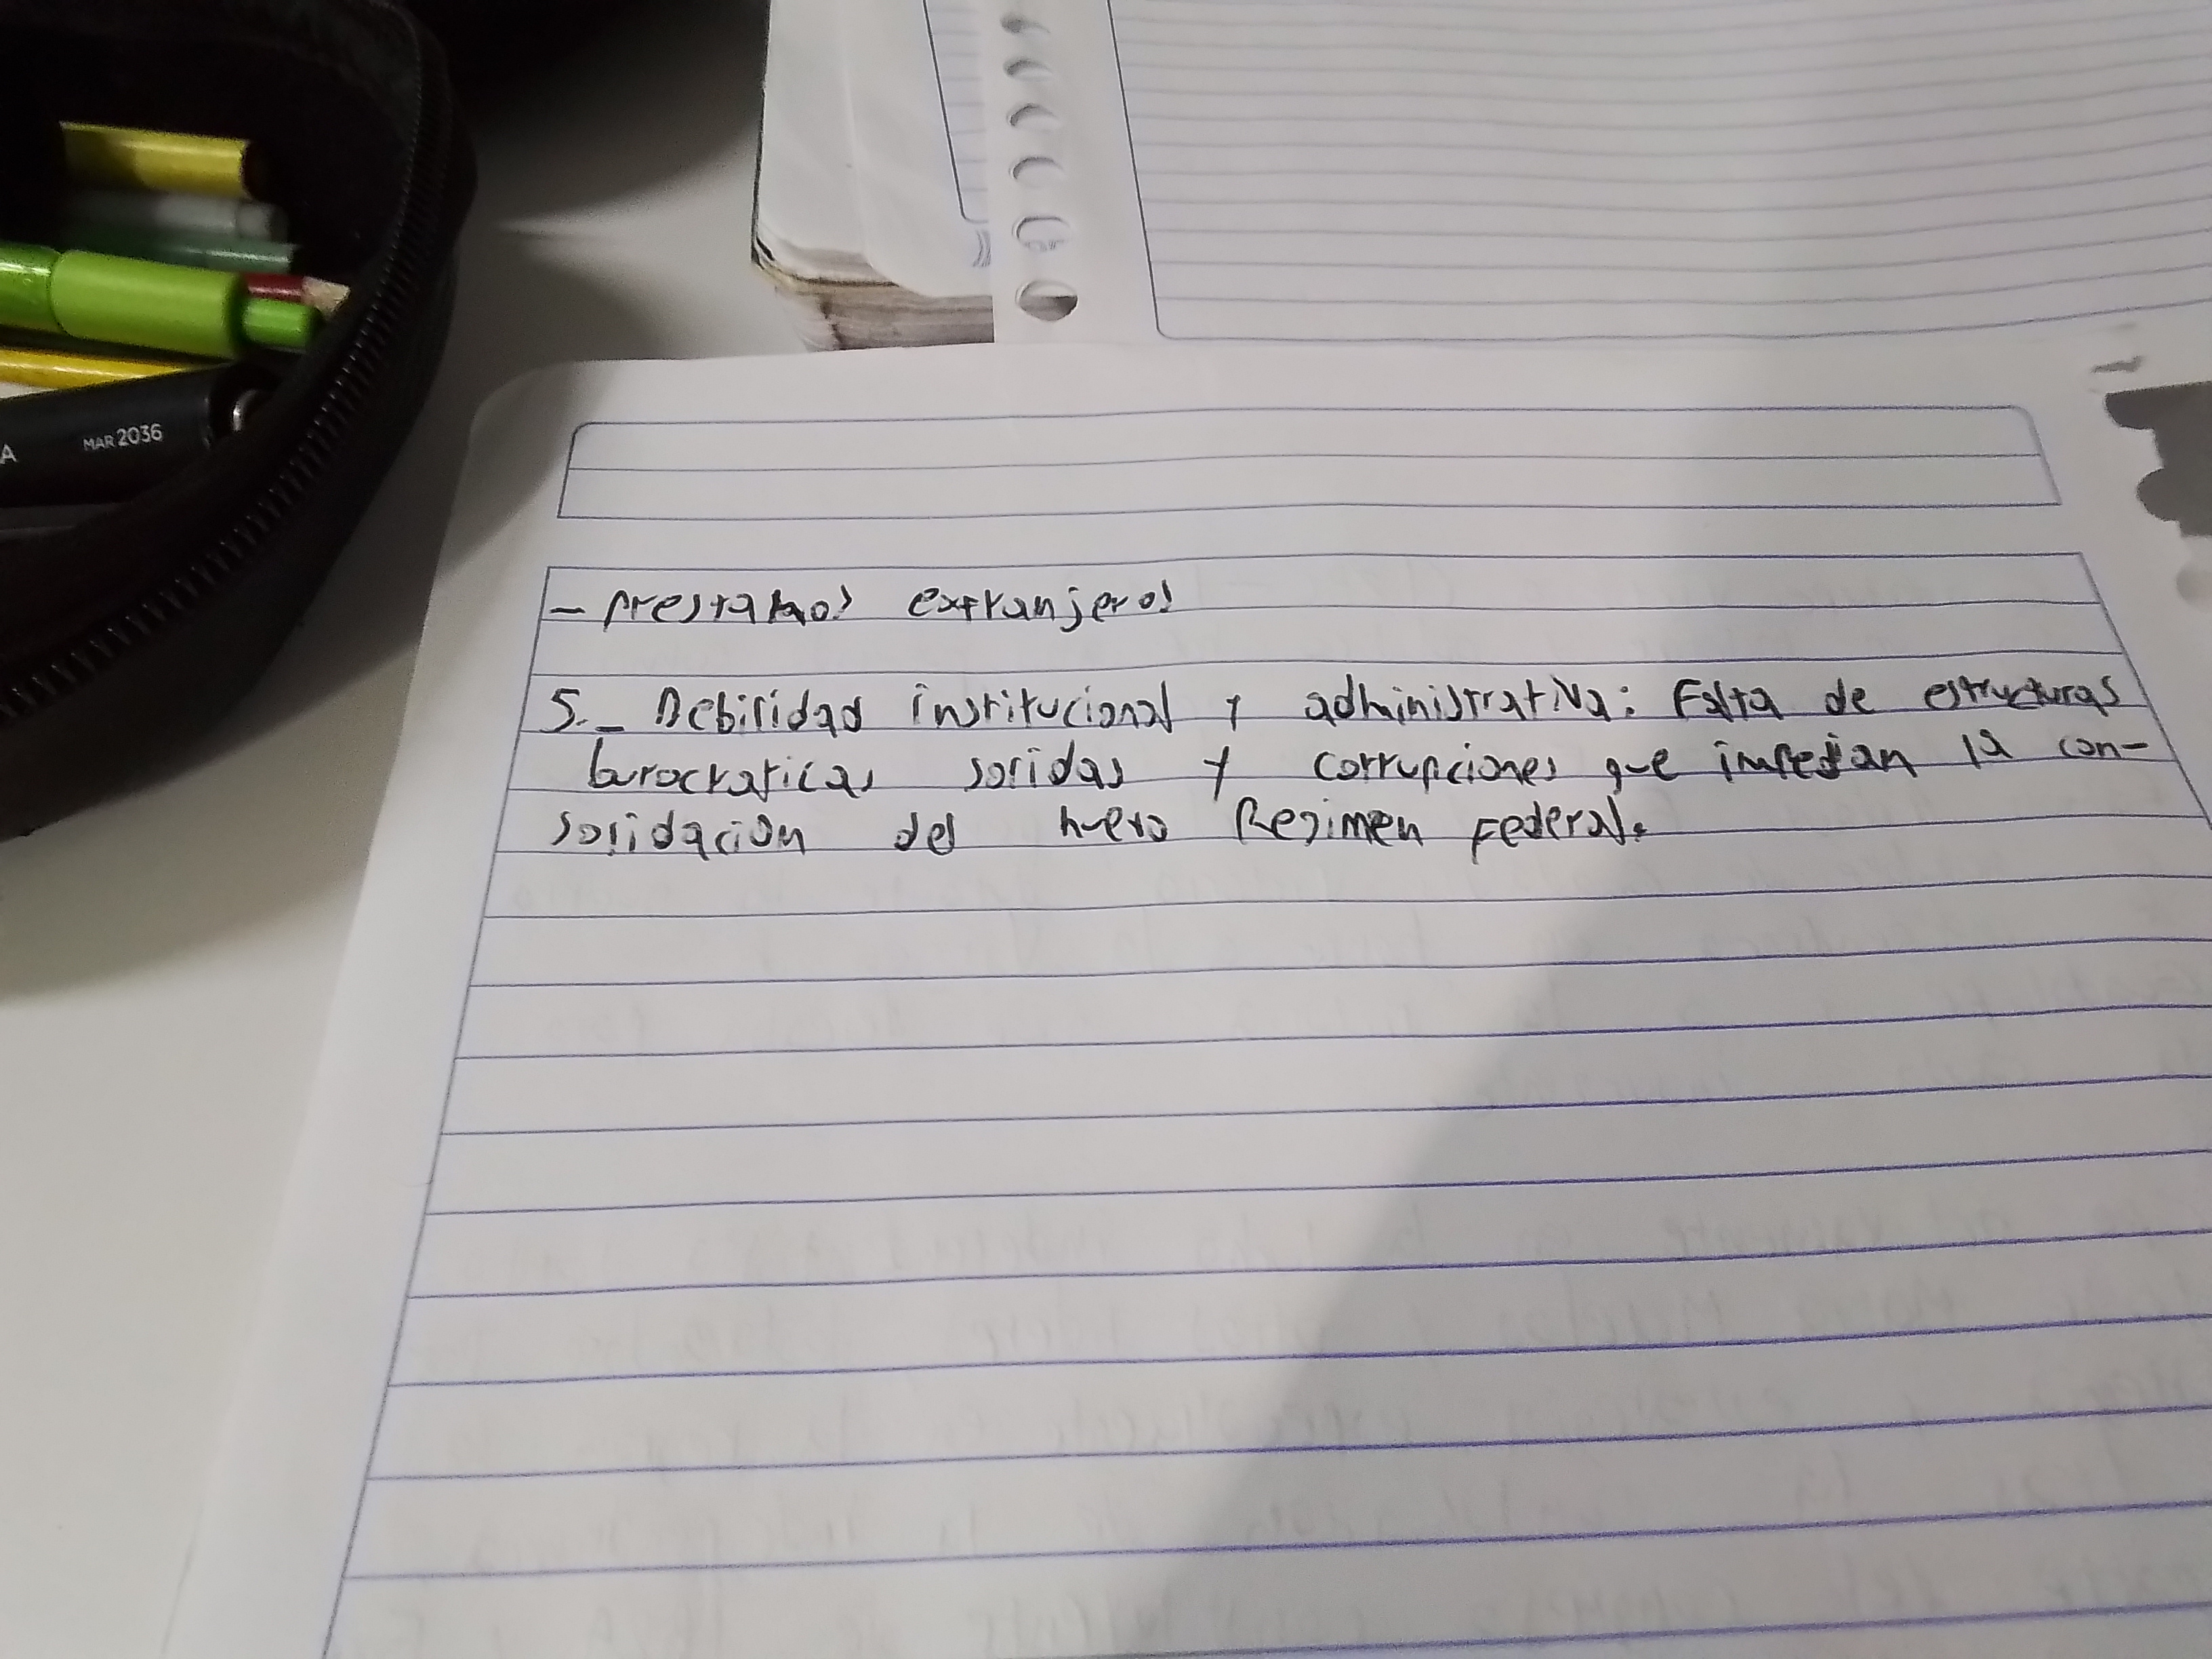 A MAR 2036
- prestamos extranjeros
5._ Debilidad institucional y administrativa: Falta de estructuras
burocraticas solidas y corrupciones que impedian la con-
solidacion del nuevo Regimen Federal.